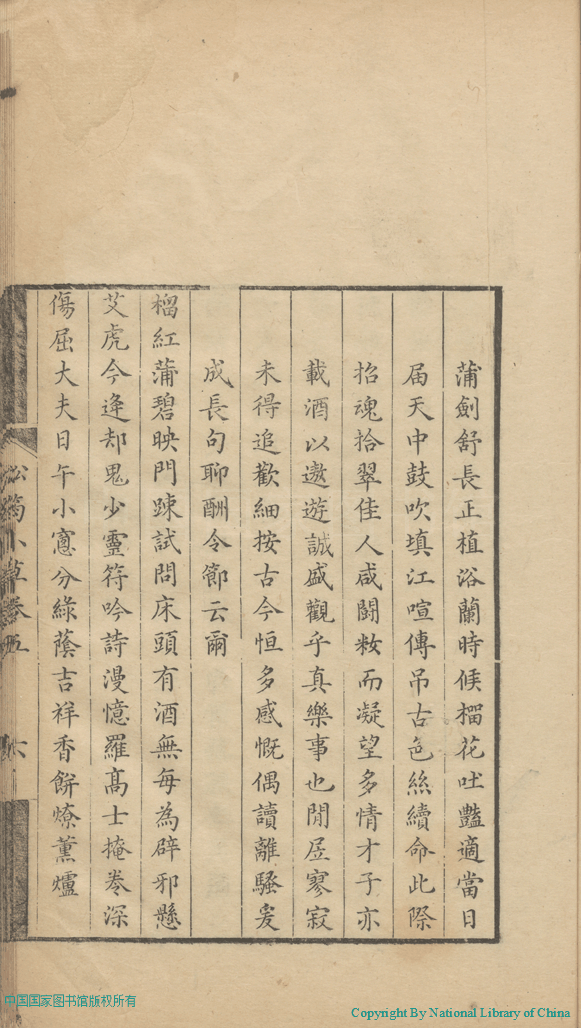 蒲劍舒長正植浴蘭時候榴花吐豔適當日
届天中鼓吹填江喧傳吊古色絲續命此際
招魂拾翠佳人咸鬪粧而凝望多情才子亦
載酒以遨遊誠盛觀乎真樂事也閒居寥寂
未得追歡細按古今恒多感慨偶讀離騷爰
成長句聊酬令節云爾
榴紅蒲碧映門踈試問床頭有酒無每為辟邪懸
艾虎今逢却鬼少靈符吟詩漫憶羅高士掩卷深
傷屈大夫日午小窻分綠蔭吉祥香餅燎薰爐
松筠小草卷五
六
中国国家图书馆版权所有
Copyright By National Library of China